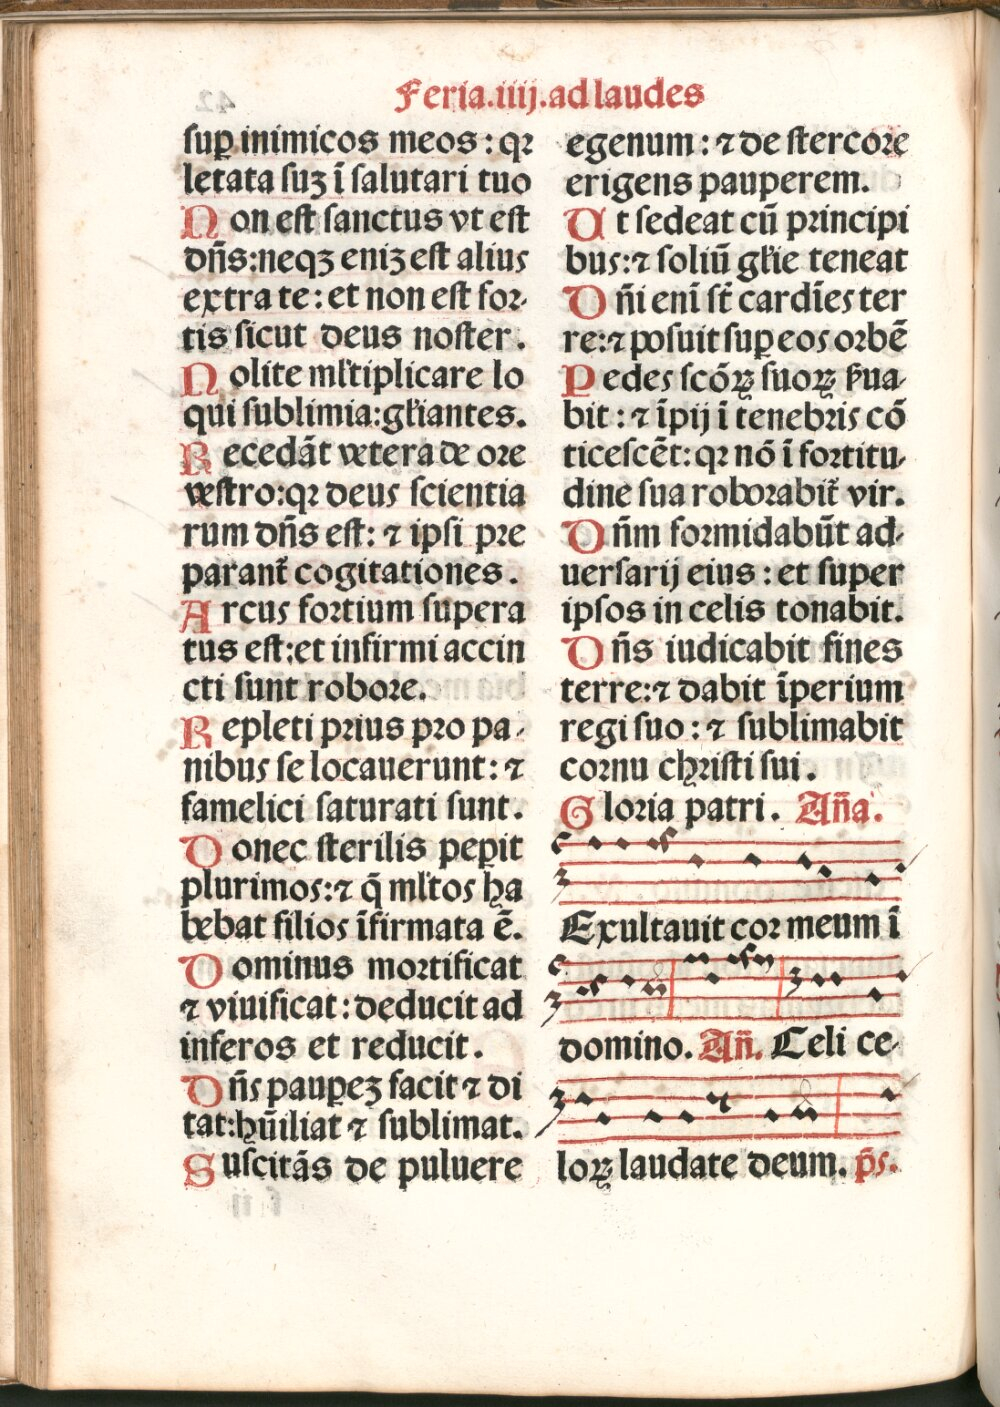 Feria.iiij.ad laudes
suꝑ inimicos meos : qꝛ
letata suʒ ī salutari tuo
Non est sanctus vt est
dn̄s:neqʒ eniʒ est alius
extra te : et non est for-
tis sicut deus noster .
Nolite ml̄tiplicare lo
qui sublimia:gl̄iantes.
Recedāt vetera de ore
vestro:qꝛ deus scientia
rum dn̄s est: ⁊ ipsi pre
parant᷑ cogitationes .
Arcus fortium supera
tus est:et infirmi accin
cti sunt robore.
Repleti prius pro pa-
nibus se locauerunt: ⁊
famelici saturati sunt.
Donec sterilis peꝑit
plurimos:⁊ q̄ ml̄tos ha
bebat filios īfirmata ē.
Dominus mortificat
⁊ viuificat : deducit ad
inferos et reducit .
Dn̄s pauꝑeʒ facit ⁊ di
tat:hūiliat ⁊ sublimat.
Suscitās de puluere
egenum : ⁊ de stercore
erigens pauperem.
Ut sedeat cū principi
bus:⁊ soliū gl̄ie teneat
Dn̄i enī st̄ cardīes ter
re:⁊ posuit suꝑ eos orbē
Pedes scōꝝ suoꝝ ẜua-
bit : ⁊ īpij ī tenebris cō
ticescēt: qꝛ nō ī fortitu-
dine sua roborabit᷑ vir.
Dn̄m formidabūt ad-
uersarij eius : et super
ipsos in celis tonabit.
Dn̄s iudicabit fines
terre:⁊ dabit īperium
regi suo : ⁊ sublimabit
cornu christi sui .
Gloria patri . Añа.
Exultauit cor meum ī
domino. Añ. Celi ce-
loꝝ laudate deum. p̄s.